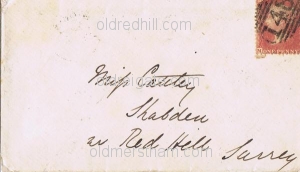 oldredhill.com
ONE PENNY
Miss Cautley
Shabden
nr Red Hill
Surrey
oldmerstham.com